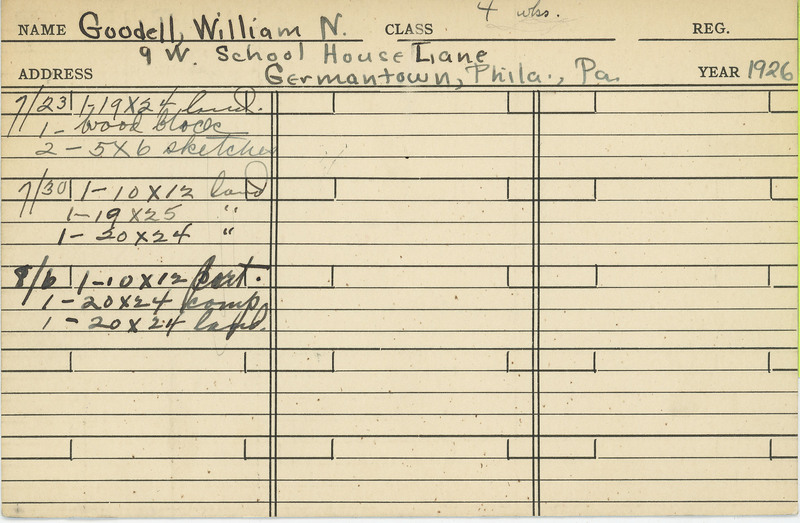 NAME Goodell, William N. CLASS 4 wks. REG.
9 W. School House Lane
ADDRESS Germantown, Phila., Pa. YEAR 1926
7/23 1-19x24 land.
1- wood block
2-5x6 sketches
7/30 1-10x12 land
1-19x25 "
1-20x24 "
8/6 1-10x12 port.
1-20x24 comp.
1-20x24 land.